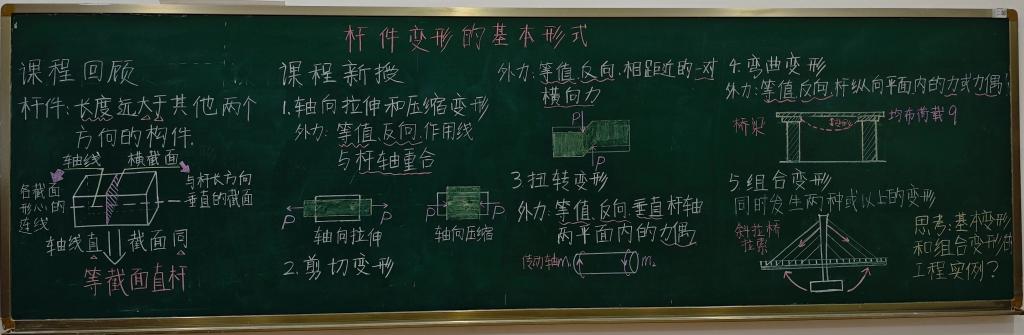 杆件变形的基本形式
课程回顾
杆件:长度远大于其他两个
方向的构件.
轴线
横截面
各截面
形心的
连线
与杆长方向
垂直的截面
轴线直
截面同
等截面直杆
课程新授
1.轴向拉伸和压缩变形
外力:等值、反向、作用线
与杆轴重合
P
P
轴向拉伸
P
P
轴向压缩
2.剪切变形
外力:等值、反向、相距近的一对
横向力
P
P
3.扭转变形
外力:等值、反向、垂直杆轴
两平面内的力偶
传动轴
m₁
m₂
4.弯曲变形
外力:等值、反向、杆纵向平面内的力或力偶
桥梁
均布荷载q
5.组合变形
同时发生两种或以上的变形
斜拉桥
拉索
思考:基本变形
和组合变形的
工程实例?